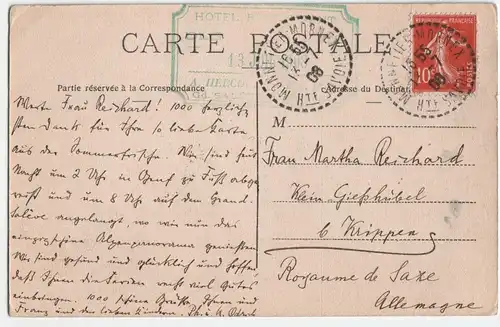 HÔTEL
CARTE POSTALE
MONNETIER-MORNEX
HTE SAVOIE
08
MONNETIER-MORNEX
HTE SAVOIE
08
RÉPUBLIQUE FRANÇAISE
10
Partie réservée à la Correspondance
Adresse du Destinat
M
Werte Frau Reichard! 1000 herzlich
sten Dank für Ihre so liebe Karte
aus der Sommerfrische. Wir sind heut
Nacht um 2 Uhr in Genf zu Fuß abge
reist und um 8 Uhr auf dem Grand
Salève angelangt, wo wir nun das
einzig schöne Alpenpanorama genießen.
Wir sind gesund und glücklich und hoffen,
daß Ihnen die Ferien recht viel Gutes
einbringen. 1000 schöne Grüße, Ihnen und
Franz und den lieben Kindern. Ph. u. A.
Frau Martha Reichard
Klein Gießhübel
b Krippen
Royaume de Saxe
Allemagne